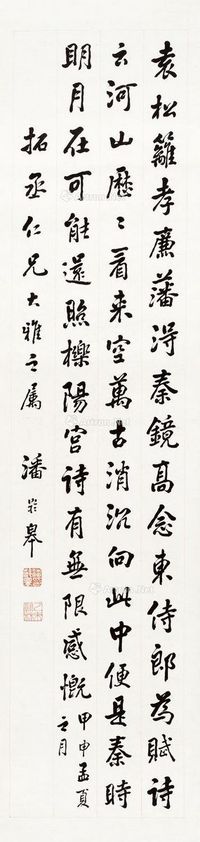 袁松籬孝廉藩淂秦鏡高念東侍郎為賦詩
云河山歷々看来空萬古消沉向此中便是秦時
明月在可能還照櫟陽宮詩有無限感慨甲申孟夏
之月
拓丞仁兄大雅之屬 潘齡皋